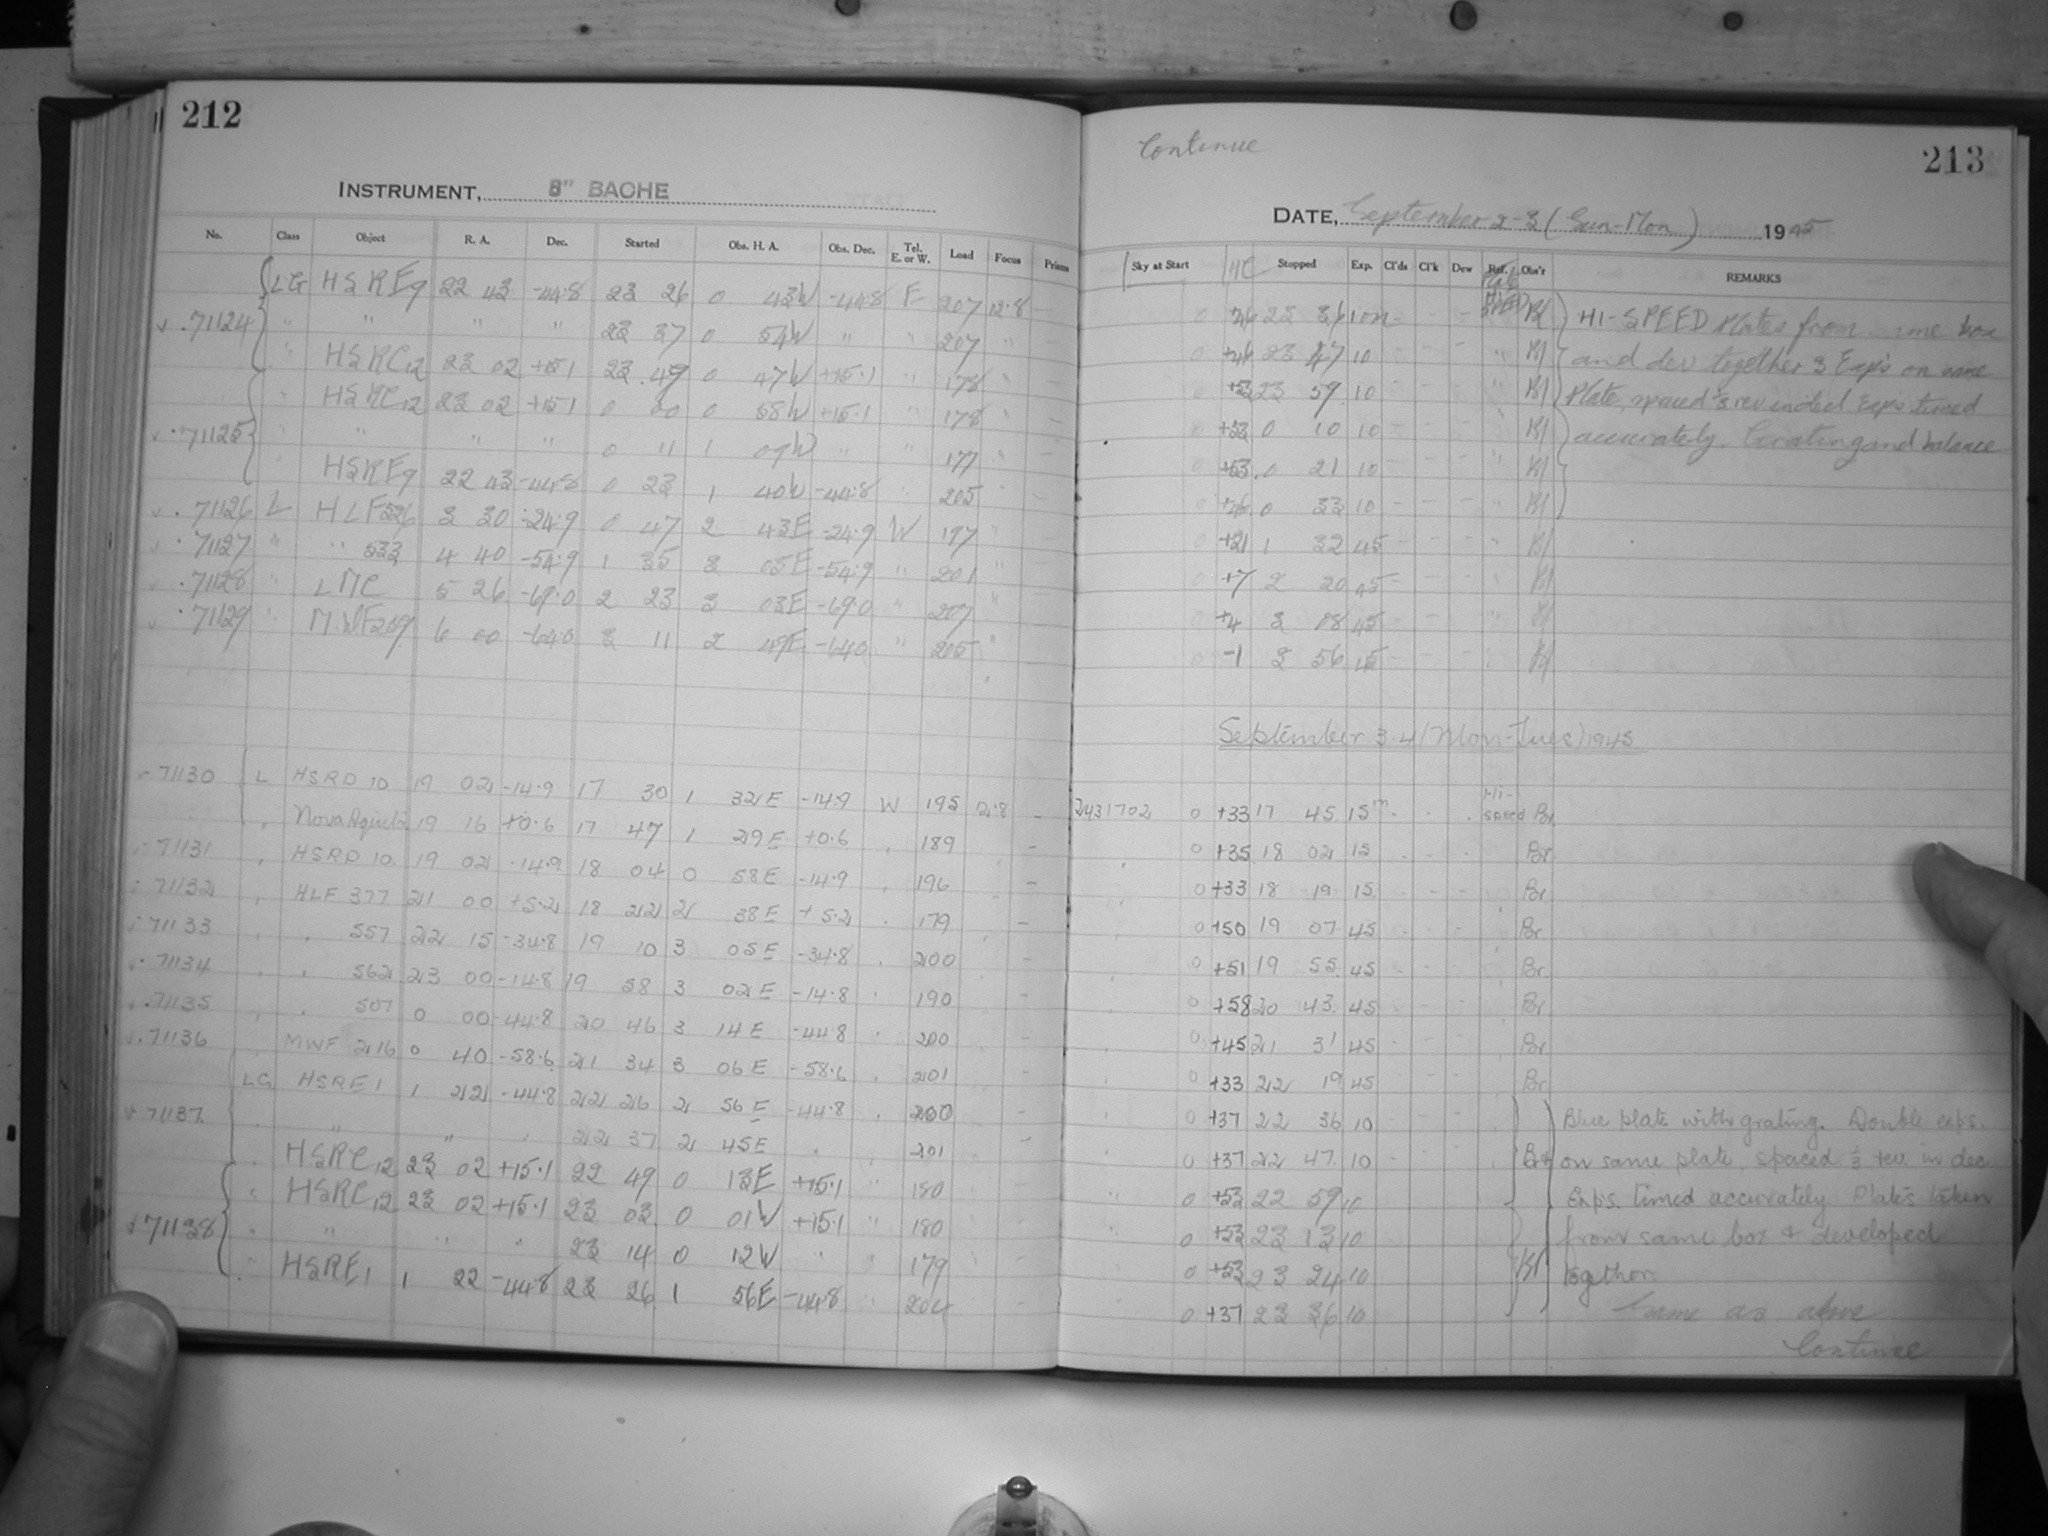 212
INSTRUMENT, 8" BACHE
No. Class Object R. A. Dec. Started Obs. H. A. Obs. Dec. Tel. E. or W. Load Focus Prisms
LG HSREq 22 43 -44.8 23 26 0 43W -44.8 E 207 12.8 -
71124 " " " " 23 37 0 54W " " 207 "
" HSRC12 23 02 +15.1 23 49 0 47W +15.1 " 178 "
" HSRC12 23 02 +15.1 0 00 0 58W +15.1 " 178 "
71125 " " " " 0 11 1 09W " " 177 "
HSREq 22 43 -44.8 0 23 1 40W -44.8 " 205 "
71126 L HLF526 3 30 -24.9 0 47 2 43E -24.9 W 197 "
71127 " " 533 4 40 -54.9 1 35 3 05E -54.9 " 201 "
71128 " LMC 5 26 -69.0 2 23 3 03E -69.0 " 207 "
71129 " MWF209 6 00 -64.0 3 11 2 49E -64.0 " 205 "
71130 L HSRD 10 19 02 -14.9 17 30 1 32E -14.9 W 195 12.8 -
Nova Aquila 19 16 +0.6 17 47 1 29E +0.6 189 -
71131 HSRD 10 19 02 -14.9 18 04 0 58E -14.9 196 -
71132 HLF 377 21 00 +5.2 18 22 2 38E +5.2 179 -
71133 557 22 15 -34.8 19 10 3 05E -34.8 200 -
71134 562 23 00 -14.8 19 58 3 02E -14.8 190 -
71135 507 0 00 -44.8 20 46 3 14E -44.8 200
71136 MWF 216 0 40 -58.6 21 34 3 06E -58.6 201
LG HSRE1 1 22 -44.8 22 26 2 56E -44.8 200 -
71137 " " 22 37 2 45E 201 -
HSRC12 23 02 +15.1 22 49 0 13E +15.1 " 180
HSRC12 23 02 +15.1 23 03 0 01W +15.1 " 180
71138 " " " " 23 14 0 12W " " 179
" HSRE1 1 22 -44.8 23 26 1 56E -44.8 " 204
Continue
213
DATE, September 2-3 (Sun-Mon) 1945
Sky at Start HC Stopped Exp. Cl'ds Cl'k Dew Ref. Obs'r REMARKS
Plate
HI-SPEED
0 +26 23 36 10m HI-SPEED Plates from same box
0 23 47 10 and dev together 3 Exp's on same
0 +53 23 59 10 Plate, spaced ½ rev in decl Exps timed
0 +53 0 10 10 accurately. Grating and balance
0 +53 0 21 10
0 +26 0 33 10
0 +21 1 32 45
0 +7 2 20 45
0 +4 3 08 45
0 -1 3 56 45
September 3-4 (Mon-Tues) 1945
2431702 0 +33 17 45 15m Hi-speed Br
0 +35 18 02 15 Br
0 +33 18 19 15 Br
0 +50 19 07 45 Br
0 +51 19 55 45 Br
0 +58 20 43 45 Br
0 +45 21 31 45 Br
0 +33 22 19 45 Br
0 +37 22 36 10 Blue plate with grating. Double exps.
0 +37 22 47 10 on same plate, spaced ½ rev. in dec
0 +53 22 59 10 Exps. timed accurately Plates taken
0 +53 23 13 10 from same box & developed
0 +53 23 24 10 together.
0 +37 23 36 10 Same as above
Continue